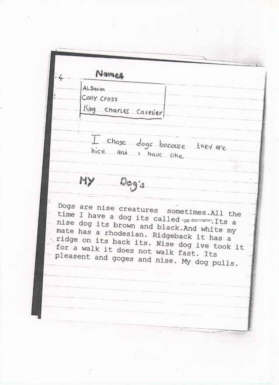 Names
Alsation
Cony Cross
King Charles Cavelier
I chose dogs because they are
nice and I have one.
MY Dog's
Dogs are nise creatures sometimes.All the
time I have a dog its called Its a
nise dog its brown and black.And white my
mate has a rhodesian. Ridgeback it has a
ridge on its back its. Nise dog ive took it
for a walk it does not walk fast. Its
pleasent and goges and nise. My dog pulls.